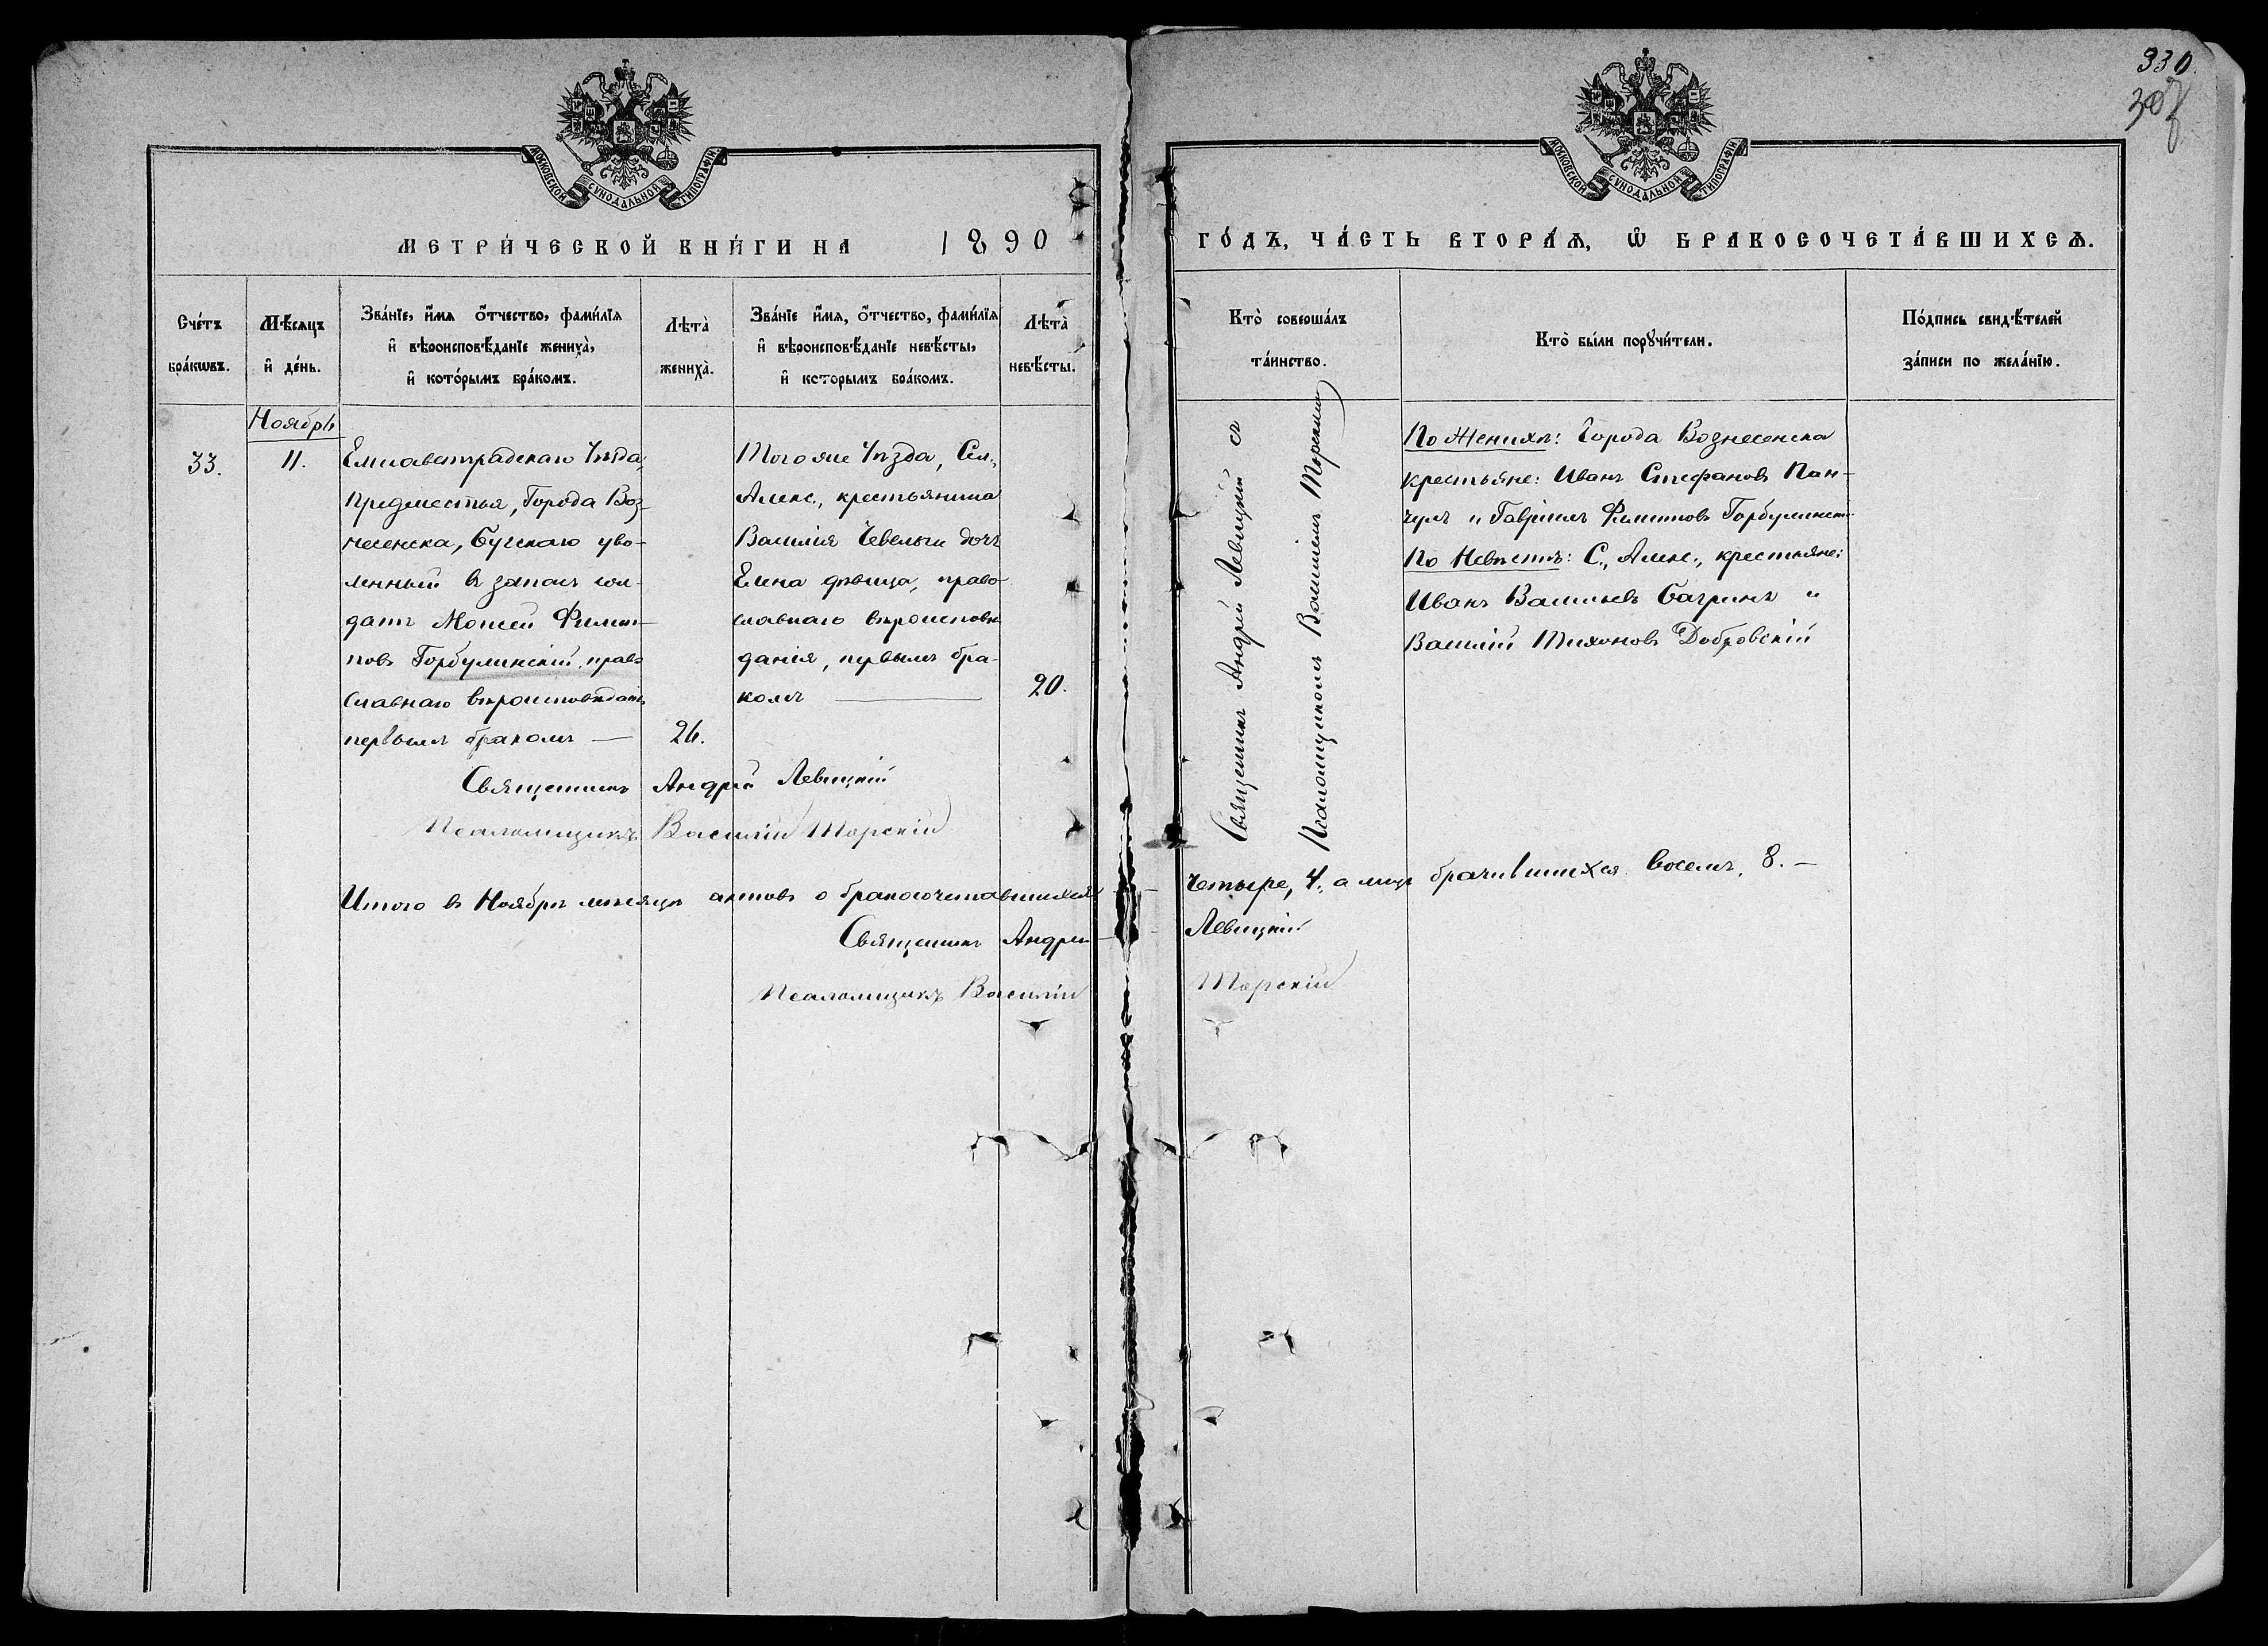 330.
307
МОСКОВСКОЙ СѴНОДАЛЬНОЙ ТИПОГРАФІИ.
МОСКОВСКОЙ СѴНОДАЛЬНОЙ ТИПОГРАФІИ.
МЕТРИ́ЧЕСКОЙ КНИ́ГИ НА 1890
ГО́ДЪ, ЧА́СТЬ ВТОРА́Ѧ, Ѽ БРАКОСОЧЕТА́ВШИХСѦ.
Сче́тъ
бра́кѡвъ.
Мѣ́сяцъ
и҆ де́нь.
Зва́нїе, и҆́мя ѻ҆́тчество, фами́лїя
и҆ вѣроисповѣ́данїе жениха̀,
и҆ кото́рымъ бра́комъ.
Лѣта̀
жениха̀.
Зва́нїе и҆́мя, ѻ҆́тчество, фами́лїя
и҆ вѣроисповѣ́данїе невѣ́сты,
и҆ кото́рымъ бра́комъ.
Лѣта̀
невѣ́сты.
Кто̀ соверша́лъ
та́инство.
Кто̀ бы́ли порꙋчи́тели.
По́дпись свидѣ́телей
за́писи по жела́нїю.
Ноябрь
33.
11.
Елисаветградскаго Уѣзда,
предместья, Города Воз-
несенска, Бугскаго уво-
ленный в запасъ сол-
датъ Моисей Филип-
повъ Горбулинскій, право
славнаго вѣроисповѣданія
первымъ бракомъ —
26.
Того же Уѣзда, Сел.,
Алекс., крестьянина
Василія Чевельги дочь
Елена дѣвица, право-
славнаго вѣроисповѣ
данія, первымъ бра-
комъ —
20.
Священникъ Андрей Левицкій съ
Псаломщикомъ Василіемъ Торскимъ
По Женихѣ: Города Вознесенска
крестьяне: Иванъ Стефановъ Пан-
чукъ и Гавріилъ Филиповъ Горбулинскій
По Невѣстѣ: С., Алекс., крестьяне:
Иванъ Васильевъ Багринъ и
Василій Тихоновъ Добровскій
Священникъ Андрей Левицкій
Псаломщикъ Василій Торскій
Итого въ Ноябрѣ месяцѣ актовъ о бракосочетавшихся — четыре, 4., а лицъ брачившихся восемь, 8. —
Священникъ Андрей — Левицкій
Псаломщикъ Василій Торскій